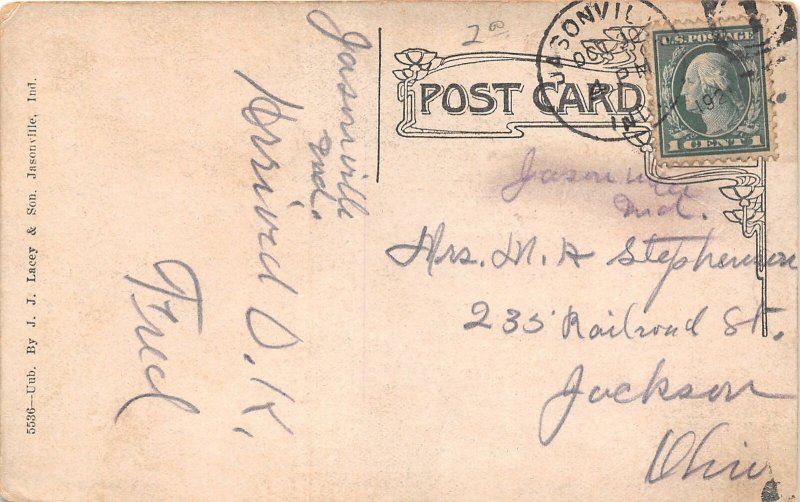 5536—Uub. By J. J. Lacey & Son. Jasonville, Ind.
Jasonville
Ind.
Arrived O.K.
Fred
2 00
POST CARD
JASONVILLE
OCT
IND
U.S. POSTAGE
1 CENT 1
Jasonville
Ind.
Mrs. M. A Stephenson
235 Railroad St.
Jackson
Ohio